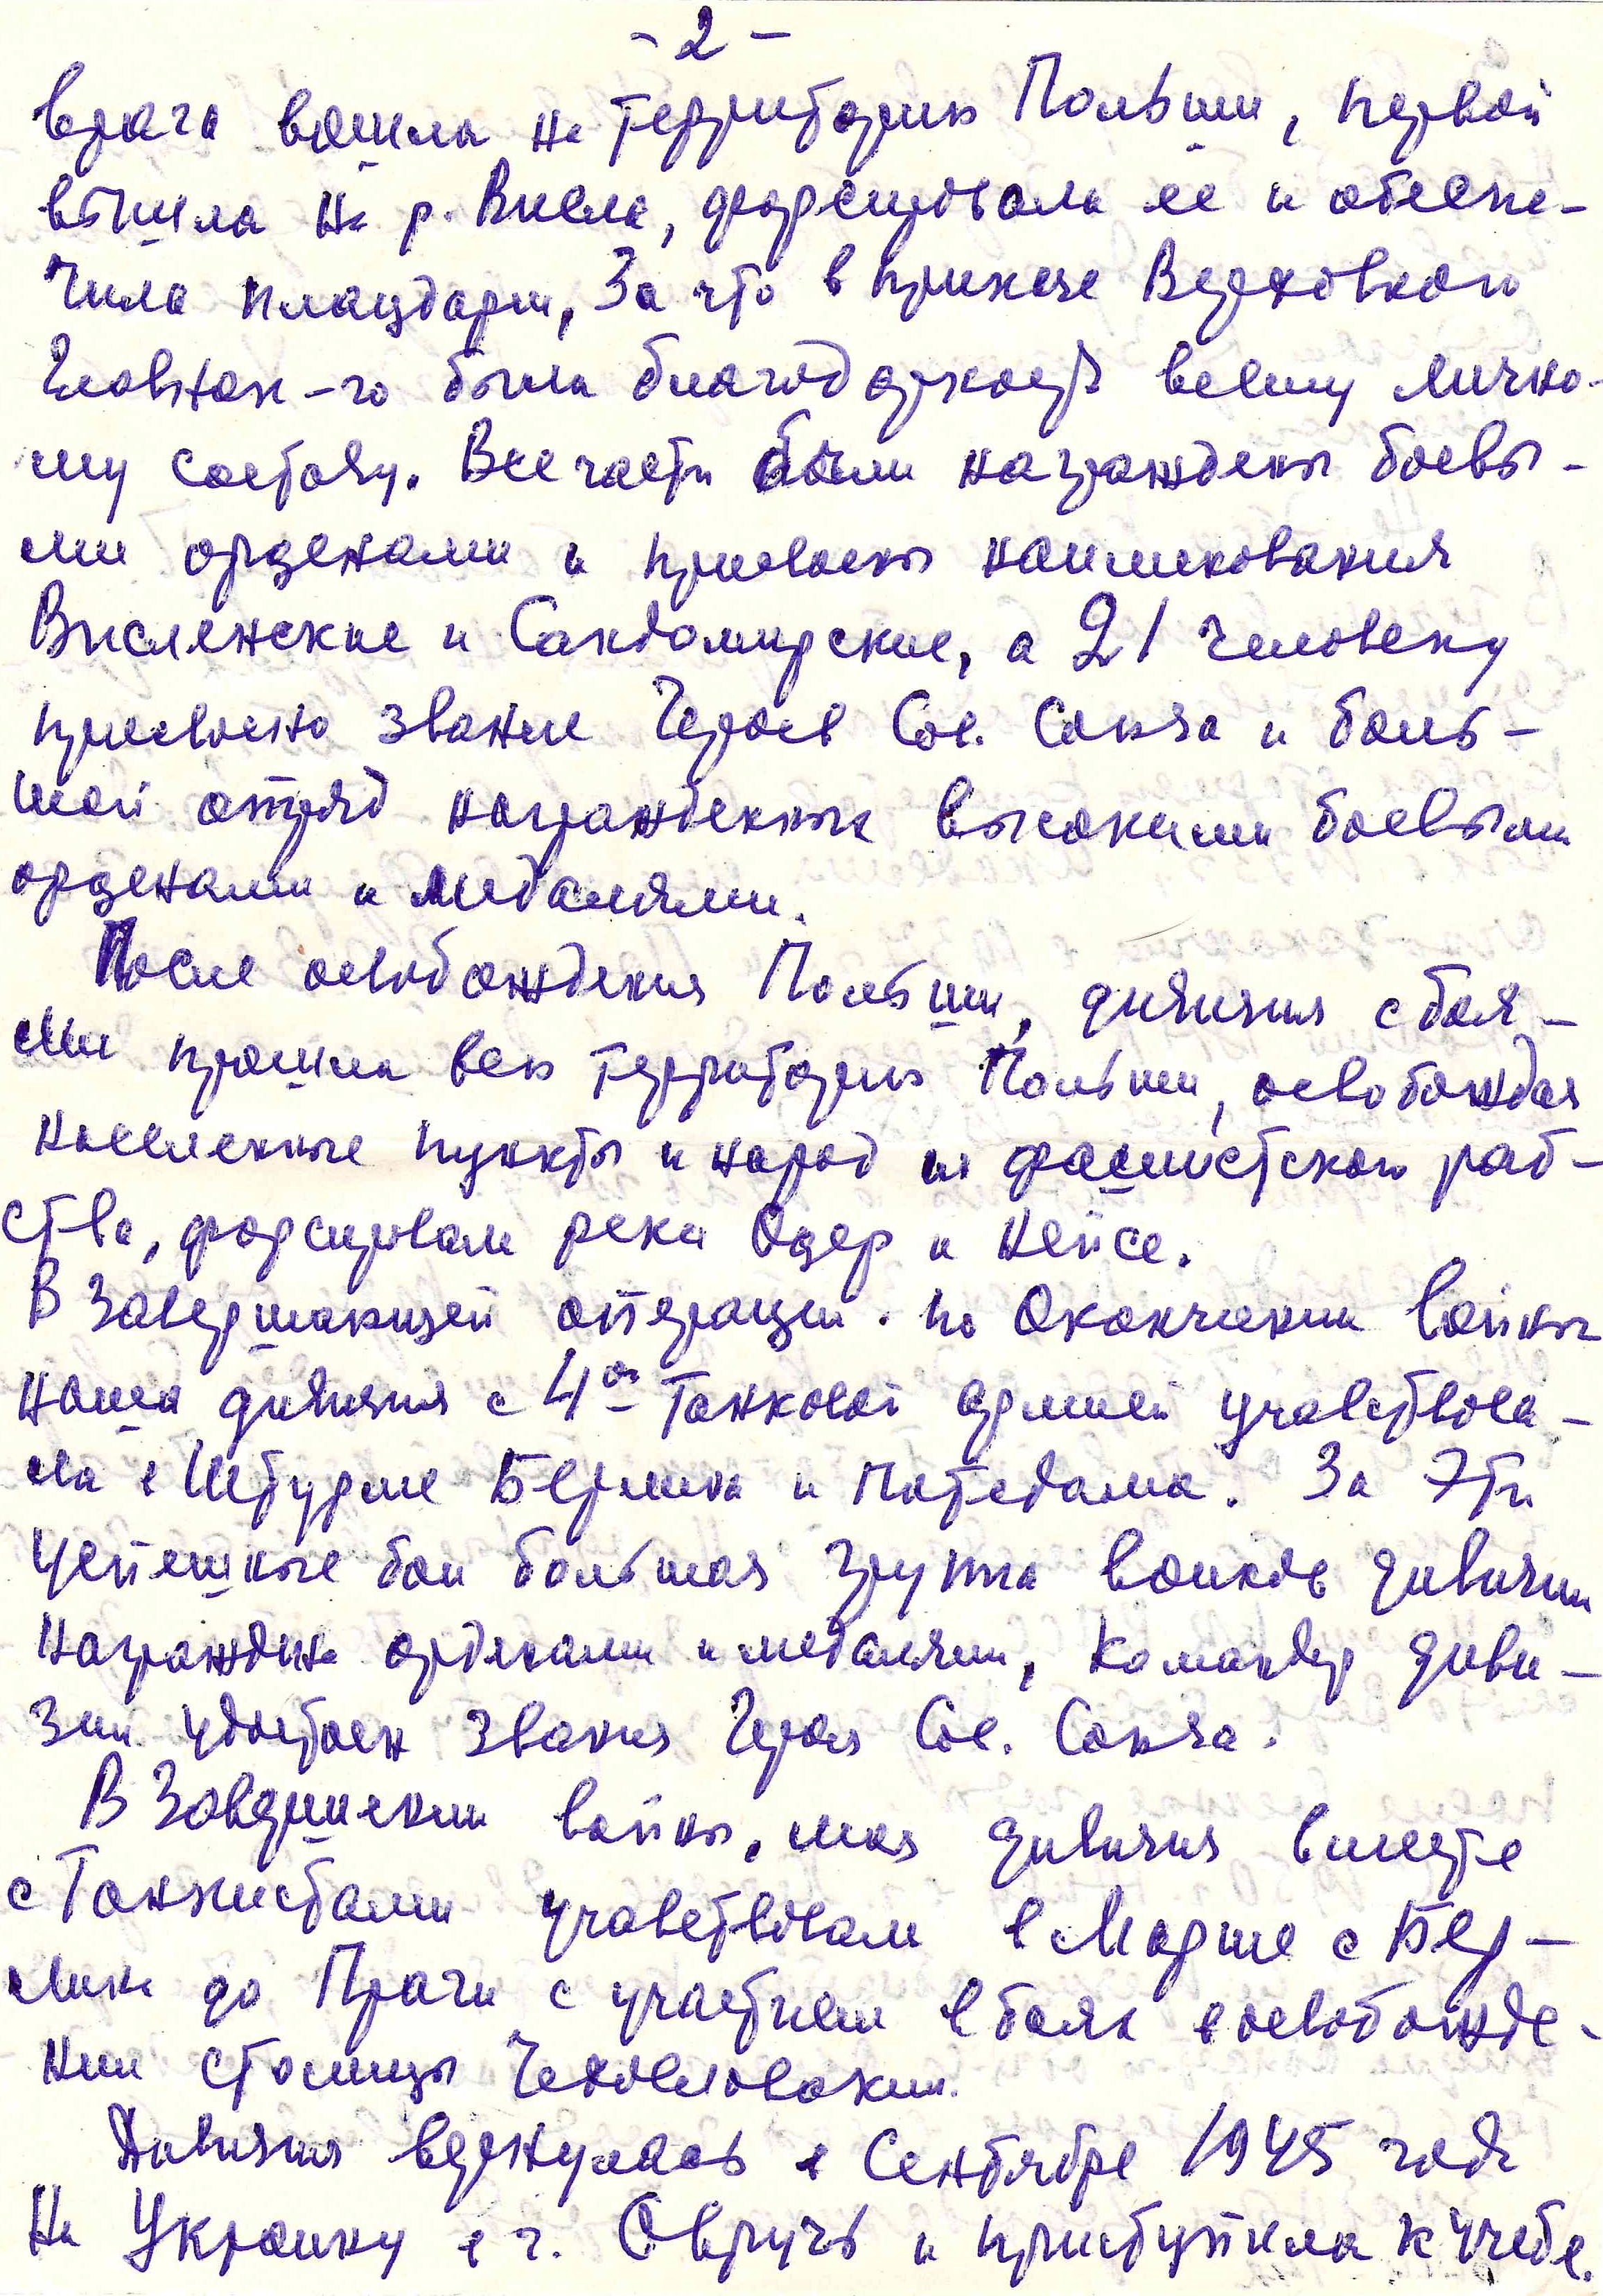 - 2 -
врага вошла на территорию Польши, первой
вышла на р. Висла, форсировала ее и обеспе-
чила плацдарм, За что в приказе Верховного
Главнок-го была благодарность всему лично-
му составу. Все части были награждены боевы-
ми орденами и присвоены наименования
Висленские и Сандомирские, а 21 человеку
присвоено звание Героев Сов. Союза и боль-
шой отряд награжденных высокими боевыми
орденами и медалями.
После освобождения Польши, дивизия с боя-
ми прошла всю территорию Польши, освобождая
населенные пункты и народ из фашистского раб-
ства, форсировали реки Одер и Нейсе.
В Завершающей операции по Окончании войны
наша дивизия с 4ой Танковой армией участвова-
ла в Штурме Берлина и Потсдама. За Эти
Успешные бои большая группа воинов дивизии
награждена орденами и медалями, Командир диви-
зии удостоен звания Героя Сов. Союза.
В Завершении войны, моя дивизия вместе
с Танкистами участвовали в Марше с Бер-
лина до Праги с участием в боях в освобожде-
нии столицы Чехословакии.
Дивизия вернулась в Сентябре 1945 года
На Украину в г. Овручь и приступила к учебе.